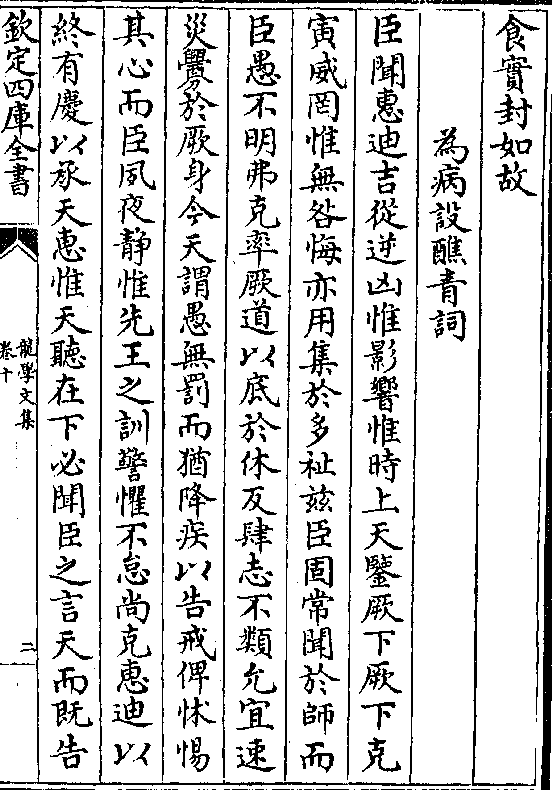 食實封如故
為病設醮青詞
臣聞惠迪吉從逆凶惟影響惟時上天鑒厥下厥下克
寅威罔惟無咎悔亦用集於多祉兹臣固常聞於師而
臣愚不明弗克率厥道以底於休反肆志不類允宜速
災釁於厥身今天謂愚無罰而猶降疾以告戒俾怵惕
其心而臣夙夜靜惟先王之訓警懼不怠尚克惠迪以
終有慶以承天惠惟天聽在下必聞臣之言天而既告
欽定四庫全書
龍學文集
卷十
二